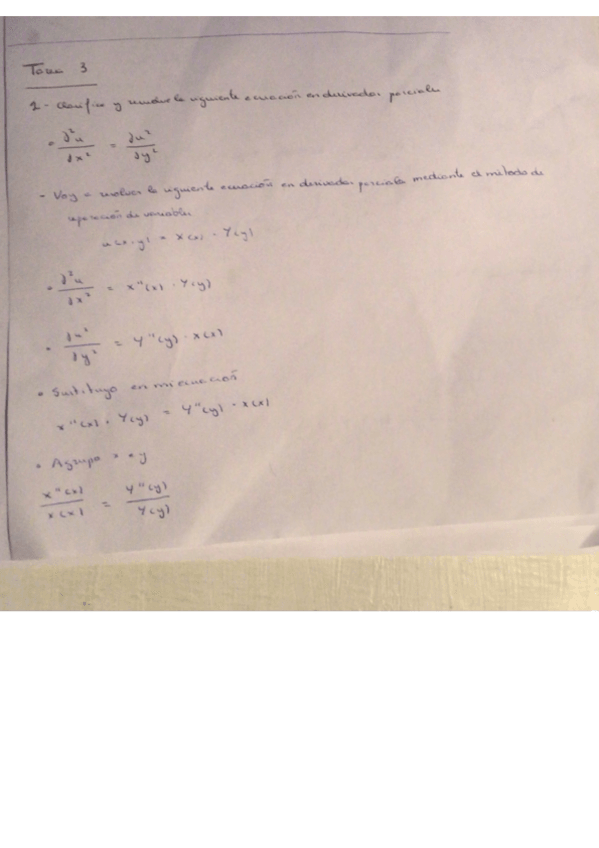 Tarea 3
2- Clasifica y resuelve la siguiente ecuación en derivadas parciales
• ∂²u/∂x² = ∂u²/∂y²
- Voy a resolver la siguiente ecuación en derivadas parciales mediante el método de
separación de variables
u(x,y) = X(x) · Y(y)
• ∂²u/∂x² = X''(x) · Y(y)
• ∂u²/∂y² = Y''(y) · X(x)
• Sustituyo en mi ecuación
X''(x) · Y(y) = Y''(y) · X(x)
• Agrupo x e y
X''(x)/X(x) = Y''(y)/Y(y)